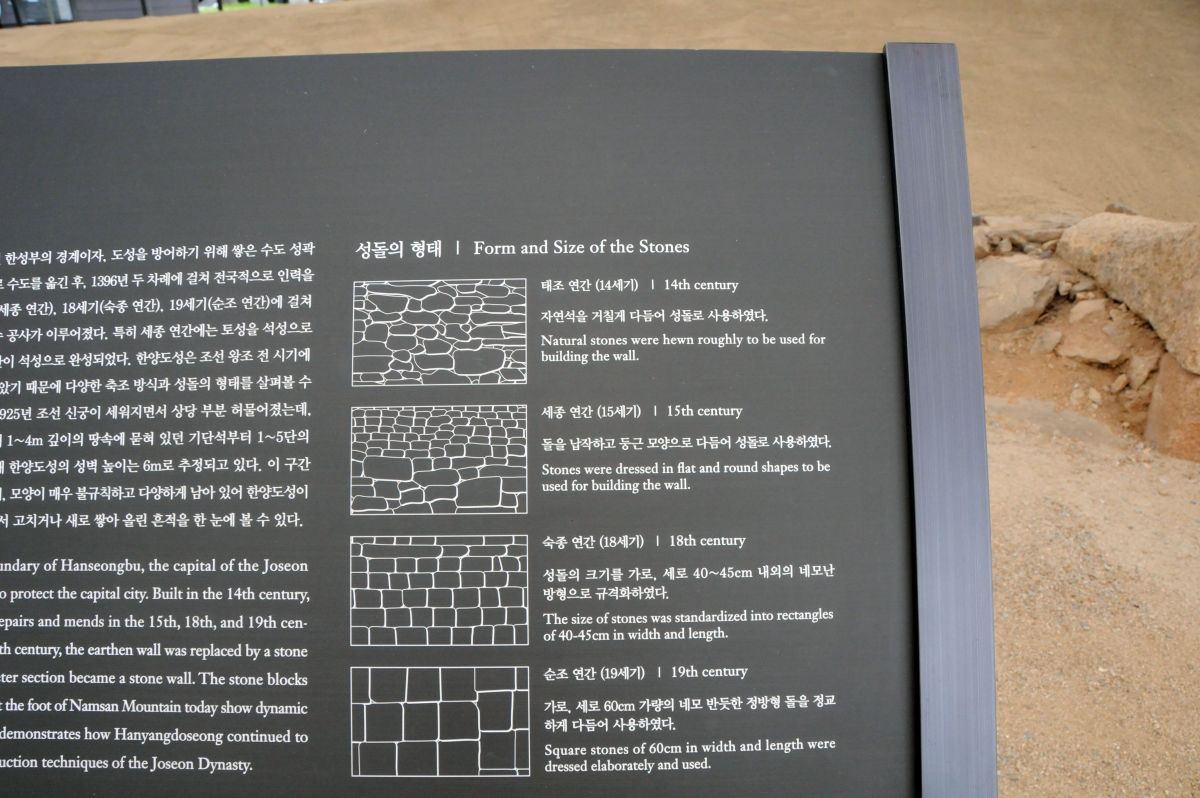 한성부의 경계이자, 도성을 방어하기 위해 쌓은 수도 성곽
수도를 옮긴 후, 1396년 두 차례에 걸쳐 전국적으로 인력을
세종 연간), 18세기(숙종 연간), 19세기(순조 연간)에 걸쳐
공사가 이루어졌다. 특히 세종 연간에는 토성을 석성으로
석성으로 완성되었다. 한양도성은 조선 왕조 전 시기에
있기 때문에 다양한 축조 방식과 성돌의 형태를 살펴볼 수
925년 조선 신궁이 세워지면서 상당 부분 허물어졌는데,
1~4m 깊이의 땅속에 묻혀 있던 기단석부터 1~5단의
한양도성의 성벽 높이는 6m로 추정되고 있다. 이 구간
모양이 매우 불규칙하고 다양하게 남아 있어 한양도성이
서 고치거나 새로 쌓아 올린 흔적을 한 눈에 볼 수 있다.
undary of Hanseongbu, the capital of the Joseon
o protect the capital city. Built in the 14th century,
epairs and mends in the 15th, 18th, and 19th cen-
th century, the earthen wall was replaced by a stone
eter section became a stone wall. The stone blocks
t the foot of Namsan Mountain today show dynamic
demonstrates how Hanyangdoseong continued to
uction techniques of the Joseon Dynasty.
성돌의 형태 | Form and Size of the Stones
태조 연간 (14세기) | 14th century
자연석을 거칠게 다듬어 성돌로 사용하였다.
Natural stones were hewn roughly to be used for
building the wall.
세종 연간 (15세기) | 15th century
돌을 납작하고 둥근 모양으로 다듬어 성돌로 사용하였다.
Stones were dressed in flat and round shapes to be
used for building the wall.
숙종 연간 (18세기) | 18th century
성돌의 크기를 가로, 세로 40~45cm 내외의 네모난
방형으로 규격화하였다.
The size of stones was standardized into rectangles
of 40-45cm in width and length.
순조 연간 (19세기) | 19th century
가로, 세로 60cm 가량의 네모 반듯한 정방형 돌을 정교
하게 다듬어 사용하였다.
Square stones of 60cm in width and length were
dressed elaborately and used.